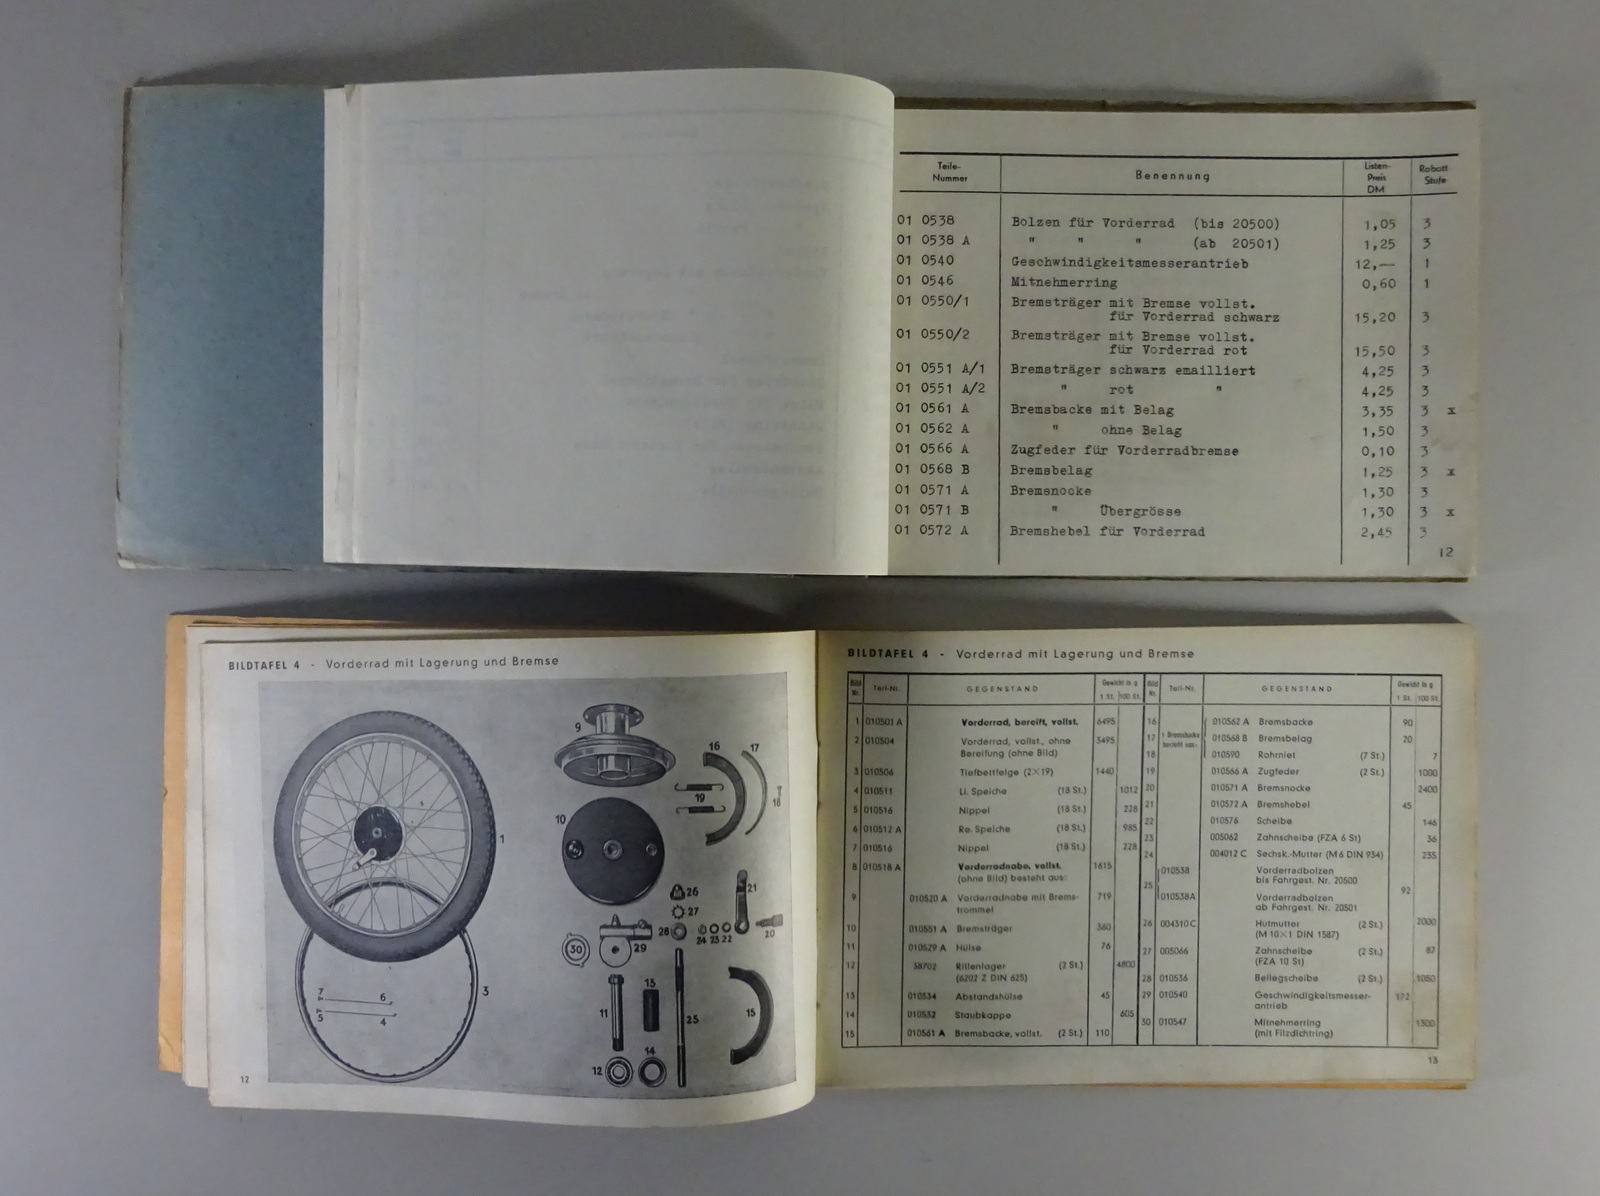 Teile-Nummer Benennung Listen-Preis DM Rabatt Stufe
01 0538 Bolzen für Vorderrad (bis 20500) 1,05 3
01 0538 A " " " (ab 20501) 1,25 3
01 0540 Geschwindigkeitsmesserantrieb 12,— 1
01 0546 Mitnehmerring 0,60 1
01 0550/1 Bremsträger mit Bremse vollst.
für Vorderrad schwarz 15,20 3
01 0550/2 Bremsträger mit Bremse vollst.
für Vorderrad rot 15,50 3
01 0551 A/1 Bremsträger schwarz emailliert 4,25 3
01 0551 A/2 " rot " 4,25 3
01 0561 A Bremsbacke mit Belag 3,35 3 x
01 0562 A " ohne Belag 1,50 3
01 0566 A Zugfeder für Vorderradbremse 0,10 3
01 0568 B Bremsbelag 1,25 3 x
01 0571 A Bremsnocke 1,30 3
01 0571 B " Übergrösse 1,30 3 x
01 0572 A Bremshebel für Vorderrad 2,45 3
12
BILDTAFEL 4 - Vorderrad mit Lagerung und Bremse
9
16 17
19
18
10
1
26
21
27
28
24 23 22
20
30
29
7 6
5 4
3
11
13
25
15
14
12
12
BILDTAFEL 4 - Vorderrad mit Lagerung und Bremse
Bild Nr. Teil-Nr. GEGENSTAND Gewicht in g 1 St. 100 St.
1 010501 A Vorderrad, bereift, vollst. 6495
2 010504 Vorderrad, vollst., ohne 3495
Bereifung (ohne Bild)
3 010506 Tiefbettfelge (2×19) 1440
4 010511 Li. Speiche (18 St.) 1012
5 010516 Nippel (18 St.) 228
6 010512 A Re. Speiche (18 St.) 985
7 010516 Nippel (18 St.) 228
8 010518 A Vorderradnabe, vollst. 1615
(ohne Bild) besteht aus:
9 010520 A Vorderradnabe mit Brems- 719
trommel
10 010551 A Bremsträger 360
11 010529 A Hülse 76
12 38702 Rillenlager (2 St.) 4800
(6202 Z DIN 625)
13 010534 Abstandshülse 45
14 010532 Staubkappe 605
15 010561 A Bremsbacke, vollst. (2 St.) 110
Bild Nr. Teil-Nr. GEGENSTAND Gewicht in g 1 St. 100 St.
16 010562 A Bremsbacke 90
17 1 Bremsbacke besteht aus: 010568 B Bremsbelag 20
18 010590 Rohrniet (7 St.) 7
19 010566 A Zugfeder (2 St.) 1000
20 010571 A Bremsnocke 2400
21 010572 A Bremshebel 45
22 010576 Scheibe 146
23 005062 Zahnscheibe (FZA 6 St) 36
24 004012 C Sechsk.-Mutter (M 6 DIN 934) 235
25 010538 Vorderradbolzen
bis Fahrgest. Nr. 20500
92
010538A Vorderradbolzen
ab Fahrgest. Nr. 20501
26 004310 C Hutmutter (2 St.) 2000
(M 10×1 DIN 1587)
27 005066 Zahnscheibe (2 St.) 87
(FZA 10 St)
28 010536 Beilegscheibe (2 St.) 1050
29 010540 Geschwindigkeitsmesser- 172
antrieb
30 010547 Mitnehmerring 1300
(mit Filzdichtring)
13